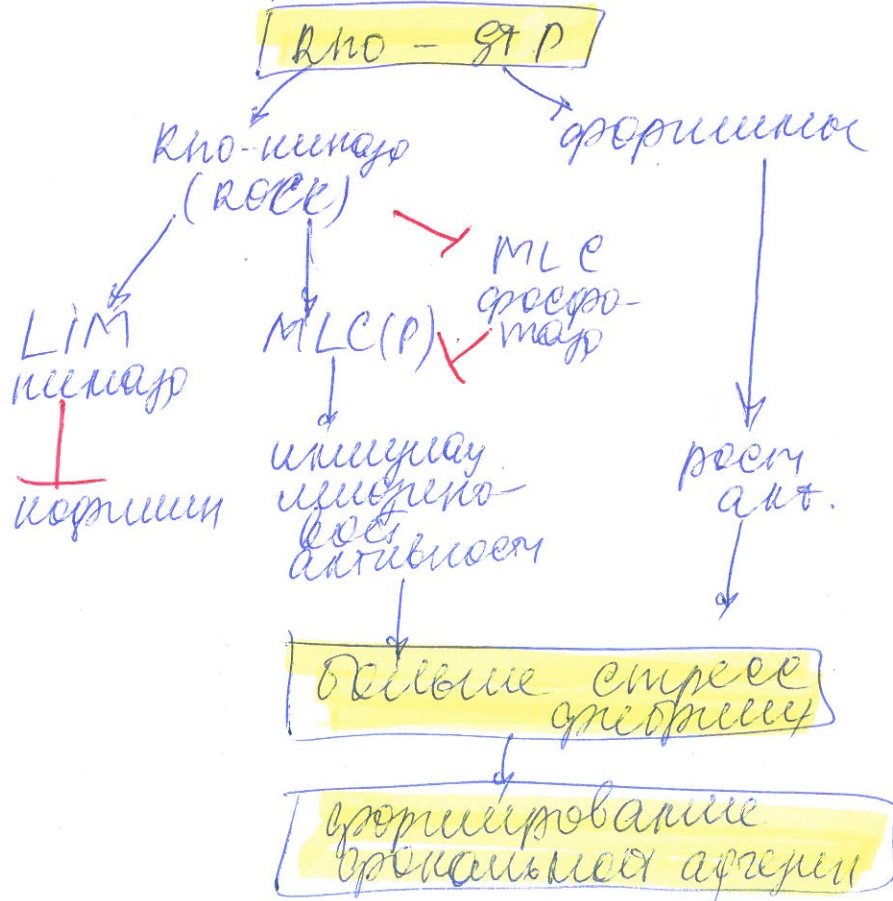 Rho - GTP
Rho-киназа
(ROCK)
формины
MLC
фосфо-
таза
LIM
киназа
MLC(P)
кофилин
миозино-
вой
активности
рост
акт.
больше стресс
фибрилл
формирование
фокальной адгезии